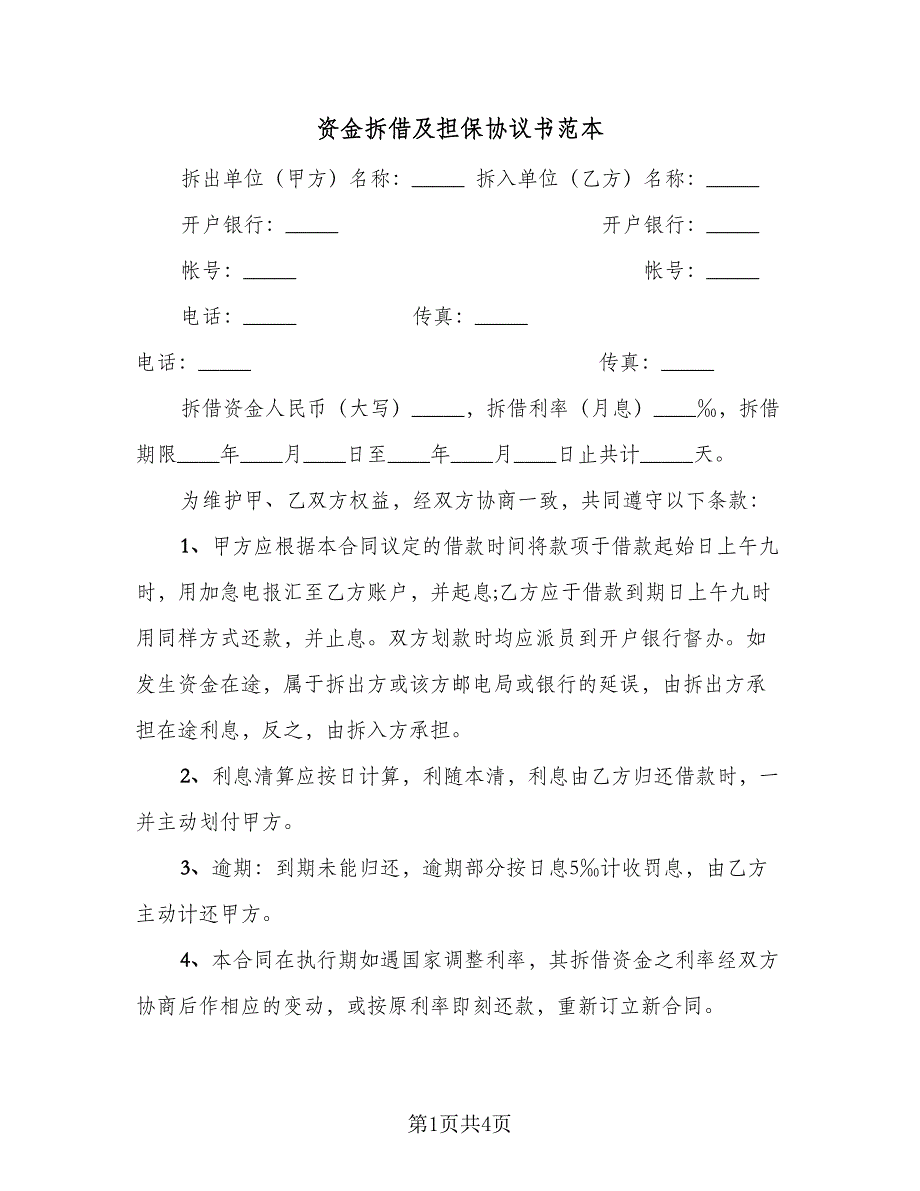 资金拆借及担保协议书范本
拆出单位（甲方）名称：_____ 拆入单位（乙方）名称：_____
开户银行：_____ 开户银行：_____
帐号：_____ 帐号：_____
电话：_____ 传真：_____
电话：_____ 传真：_____
拆借资金人民币（大写）_____，拆借利率（月息）____‰，拆借
期限____年____月____日至____年____月____日止共计_____天。
为维护甲、乙双方权益，经双方协商一致，共同遵守以下条款：
1、甲方应根据本合同议定的借款时间将款项于借款起始日上午九
时，用加急电报汇至乙方账户，并起息;乙方应于借款到期日上午九时
用同样方式还款，并止息。双方划款时均应派员到开户银行督办。如
发生资金在途，属于拆出方或该方邮电局或银行的延误，由拆出方承
担在途利息，反之，由拆入方承担。
2、利息清算应按日计算，利随本清，利息由乙方归还借款时，一
并主动划付甲方。
3、逾期：到期未能归还，逾期部分按日息5‰计收罚息，由乙方
主动计还甲方。
4、本合同在执行期如遇国家调整利率，其拆借资金之利率经双方
协商后作相应的变动，或按原利率即刻还款，重新订立新合同。
第1页共4页